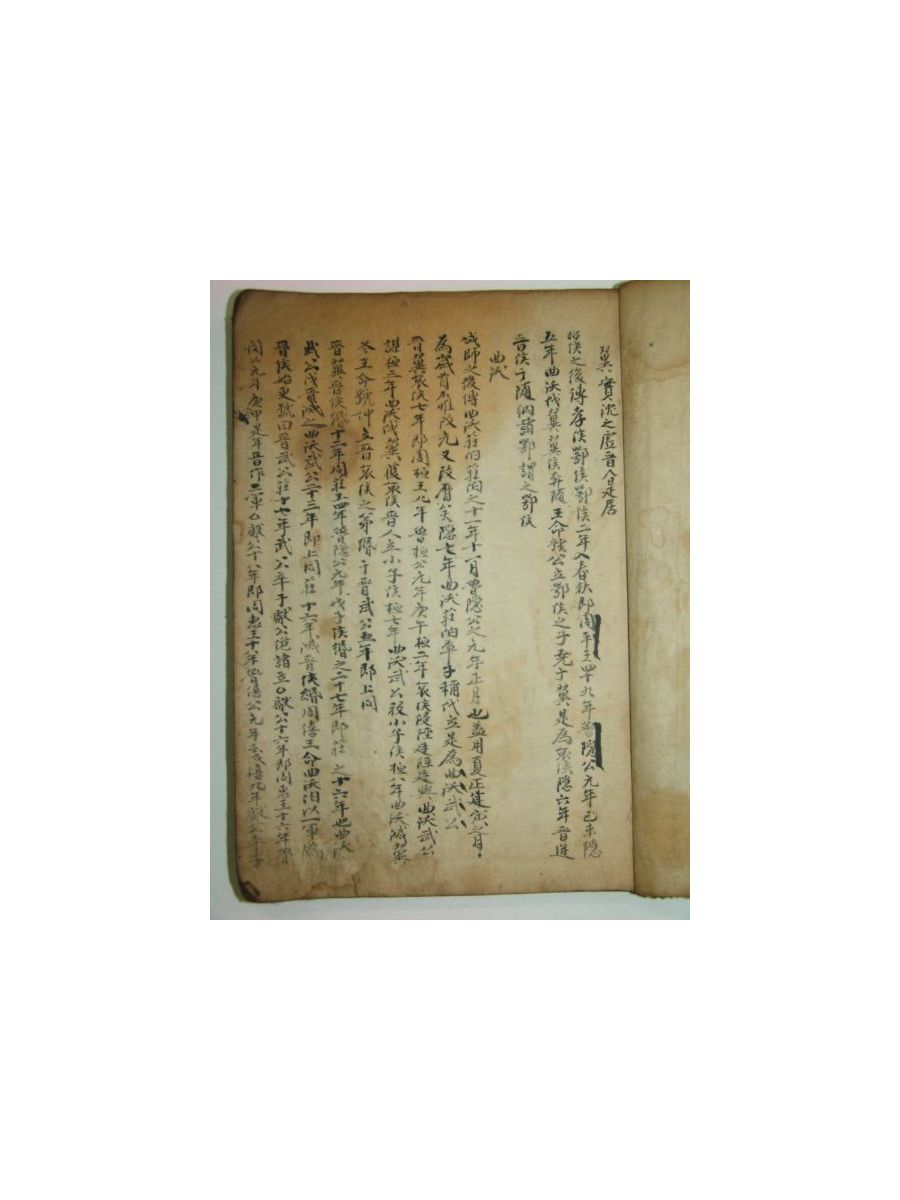 翼 實沈之虛晉人是居
昭侯之後傳孝侯鄂侯鄂侯二年入春秋即周平王四十九年魯隱公元年己未隱
五年曲沃伐翼翼侯奔隨王命虢公立鄂侯之子光于翼是為哀侯隱六年晉逆
晉侯于隨納諸鄂謂之鄂侯
曲沃
成師之後傳曲沃莊伯莊伯之十一年十一月魯隱公之元年正月也盖用夏正建寅之月
為歲首不唯改元又改曆矣隱七年曲沃莊伯卒子稱代立是為曲沃武公
晉翼哀侯七年即周桓王八年魯桓公元年庚午桓二年哀侯侵陘廷陘廷與曲沃武公
謀桓三年曲沃伐翼獲哀侯晉人立小子侯桓七年曲沃武公殺小子侯桓八年曲沃滅翼
冬王命虢仲立晉哀侯之弟緡于晉武公 年即上同
晉翼晉侯緡十二年周莊王四年魯 公元年戊子侯緡之二十七年即莊之十六年也曲沃
武公伐晉滅之曲沃武公二十三年即上同莊十六年滅晉侯緡周僖王命曲沃伯以一軍為
晉侯始更號曰晉武公莊十七年武公卒子獻公詭諸立○獻公十六年即周惠王十六年魯
閔公元年庚申是年晉作二軍○獻公十八年即周惠王十 年魯僖公元年壬戌僖九年獻公卒子